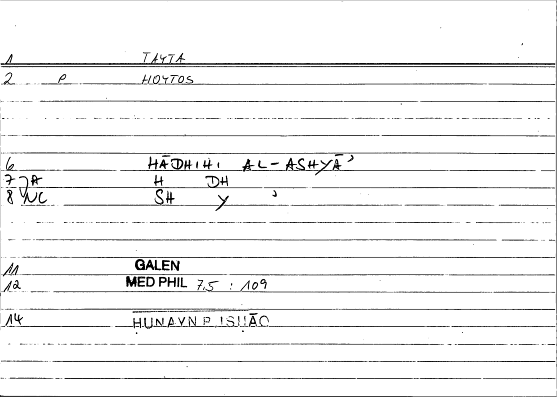 1 TAYTA
2 P HOYTOS
6 HĀDHIHI AL-ASHYĀʾ
7 A H DH
8 NC SH Y ʾ
11 GALEN
12 MED PHIL 7.5 : 109
14 ḤUNAYN B. ISḤĀQ